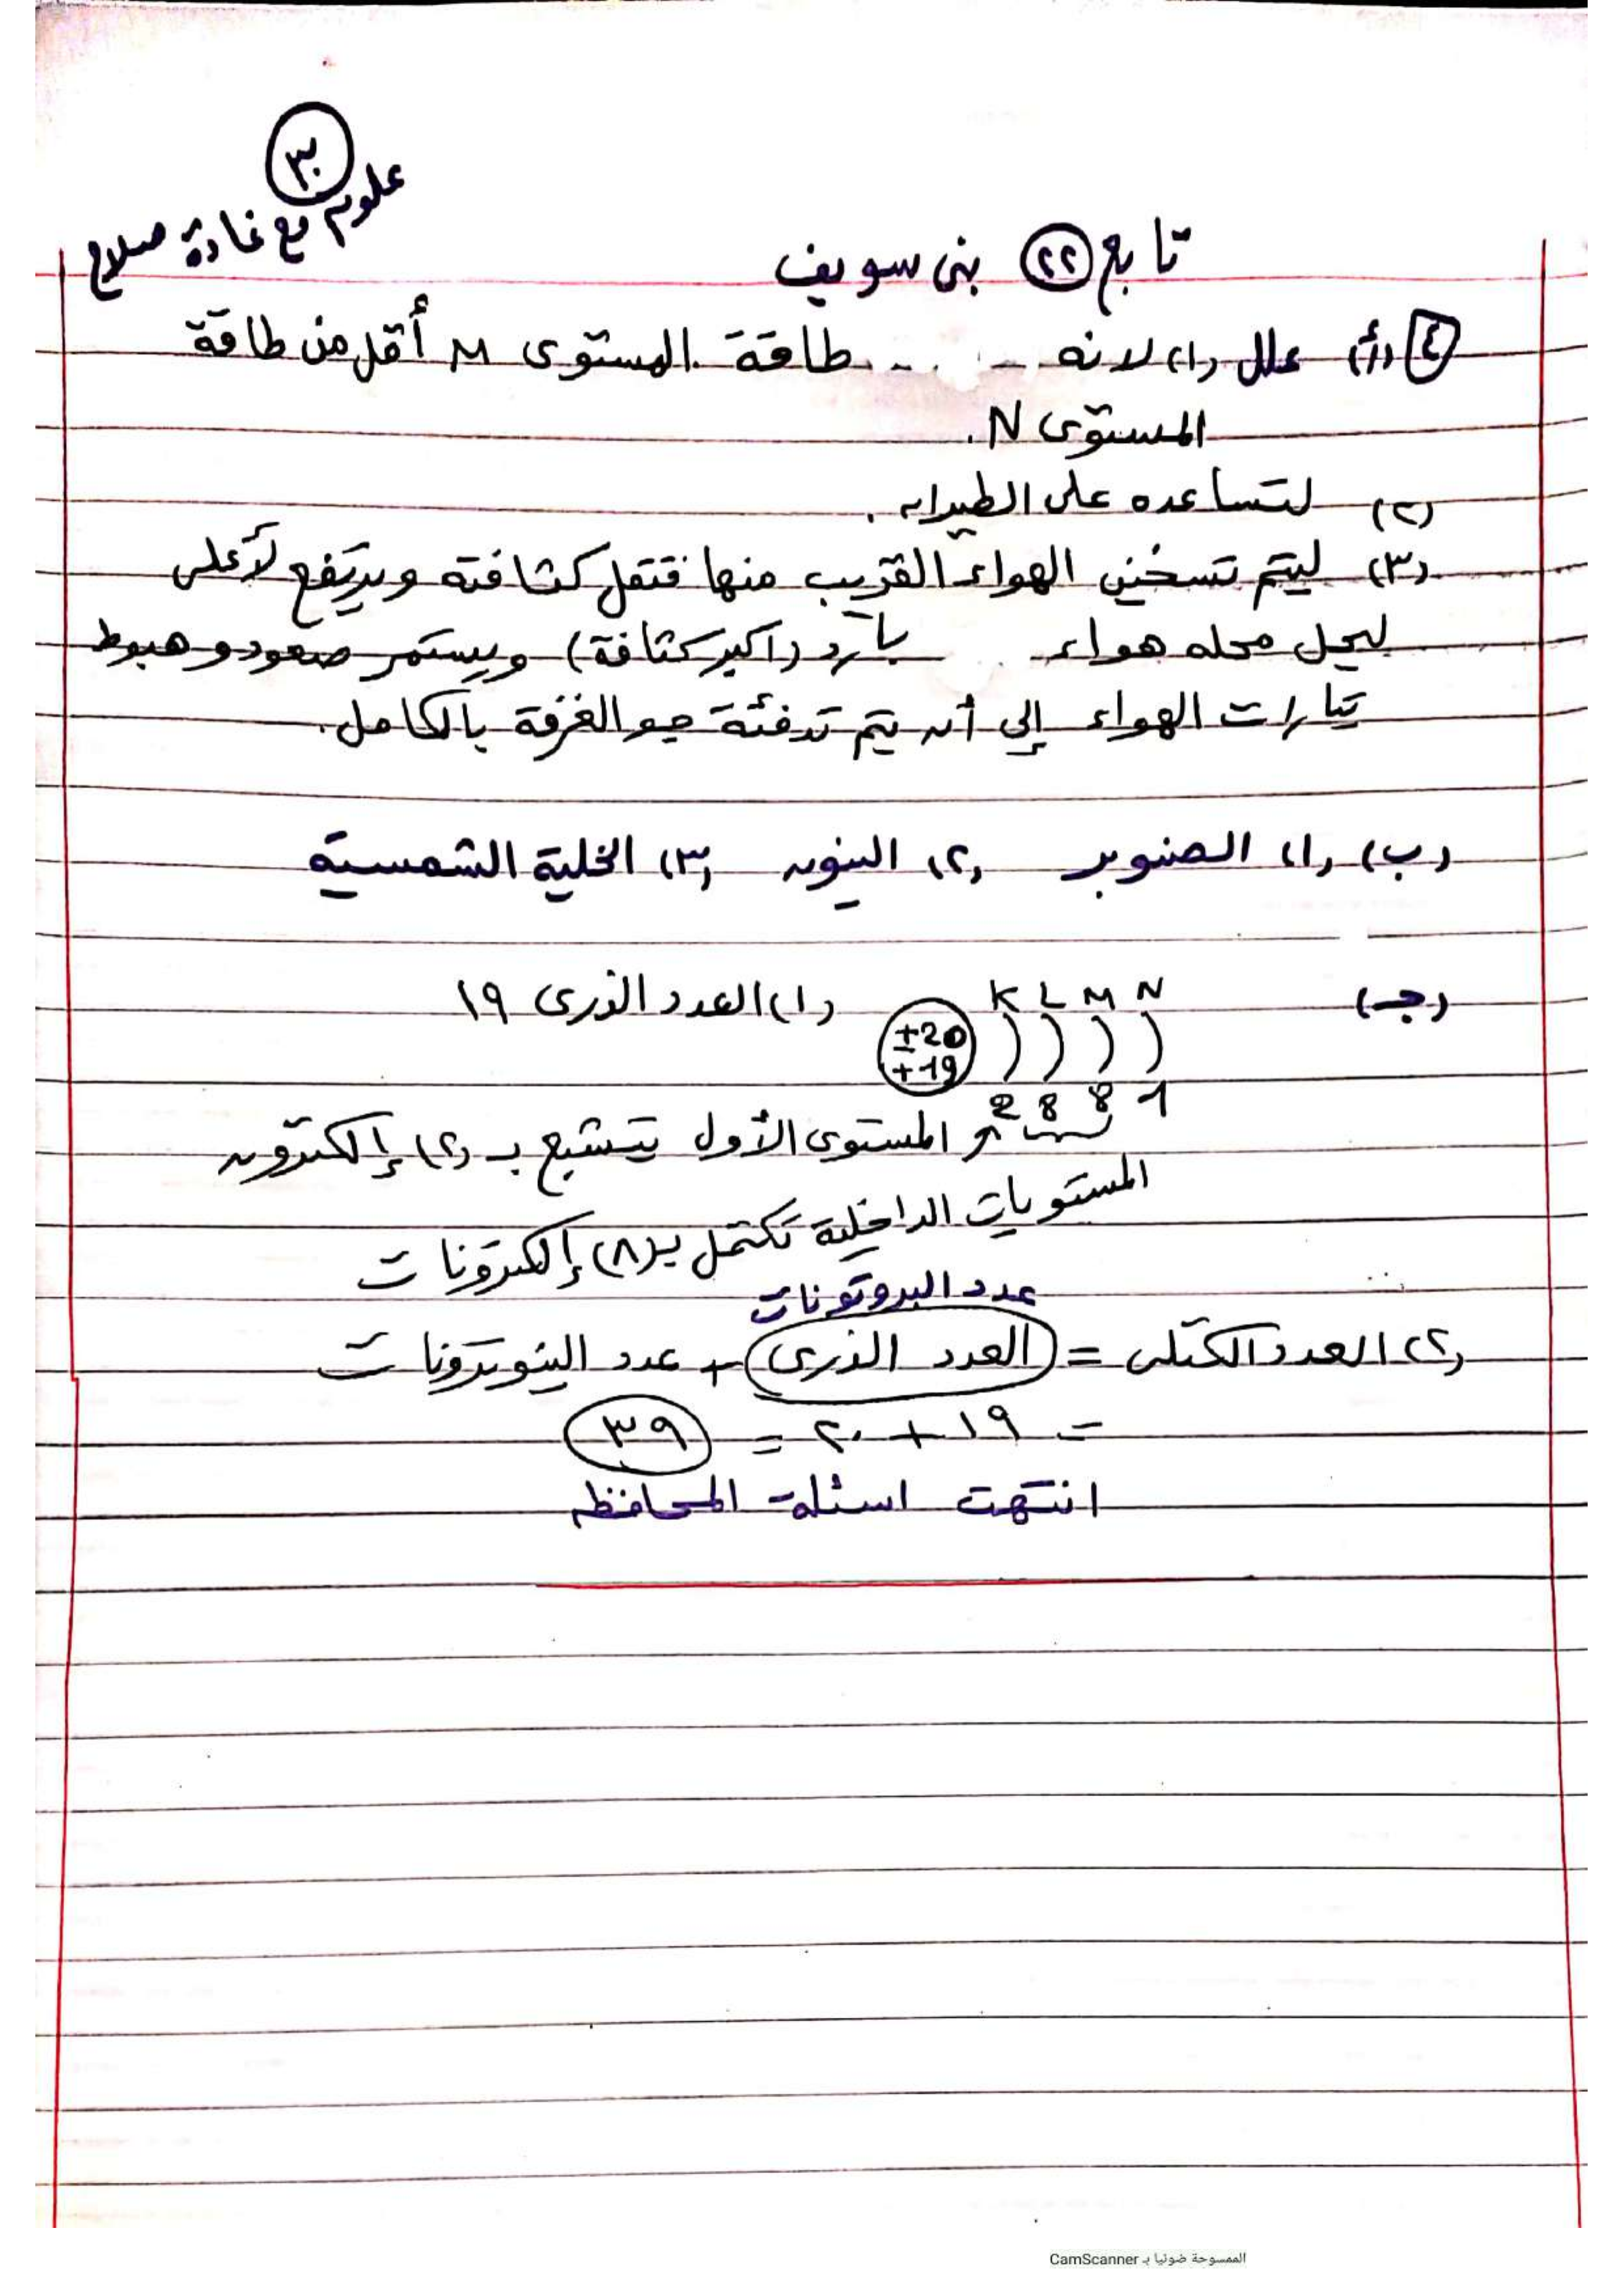 ٣٠
علوم مع غادة صلاح
تابع (٢٢) بنى سويف
٤ (أ) علل (١) لانه - .. طاقة المستوى M أقل من طاقة
المستوى N.
(٢) لتساعده على الطيران.
(٣) ليتم تسخين الهواء القريب منها فتقل كثافته ويرتفع لأعلى
ليحل محله هواء بارد (اكبر كثافة) ويستمر صعود وهبوط
تيارات الهواء إلى أن يتم تدفئة جو الغرفة بالكامل.
(ب) (١) الصنوبر (٢) النيون (٣) الخلية الشمسية
(جـ) K L M N (١) العدد الذرى ١٩
±20
+19
2 8 8 1
المستوى الأول يتشبع بـ (٢) إلكترون
المستويات الداخلية تكتمل بـ (٨) إلكترونات
عدد البروتونات
(٢) العدد الكتلى = العدد الذرى + عدد النيوترونات
= ١٩ + ٢٠ = ٣٩
انتهت اسئلة المحافظه
الممسوحة ضوئيا بـ CamScanner